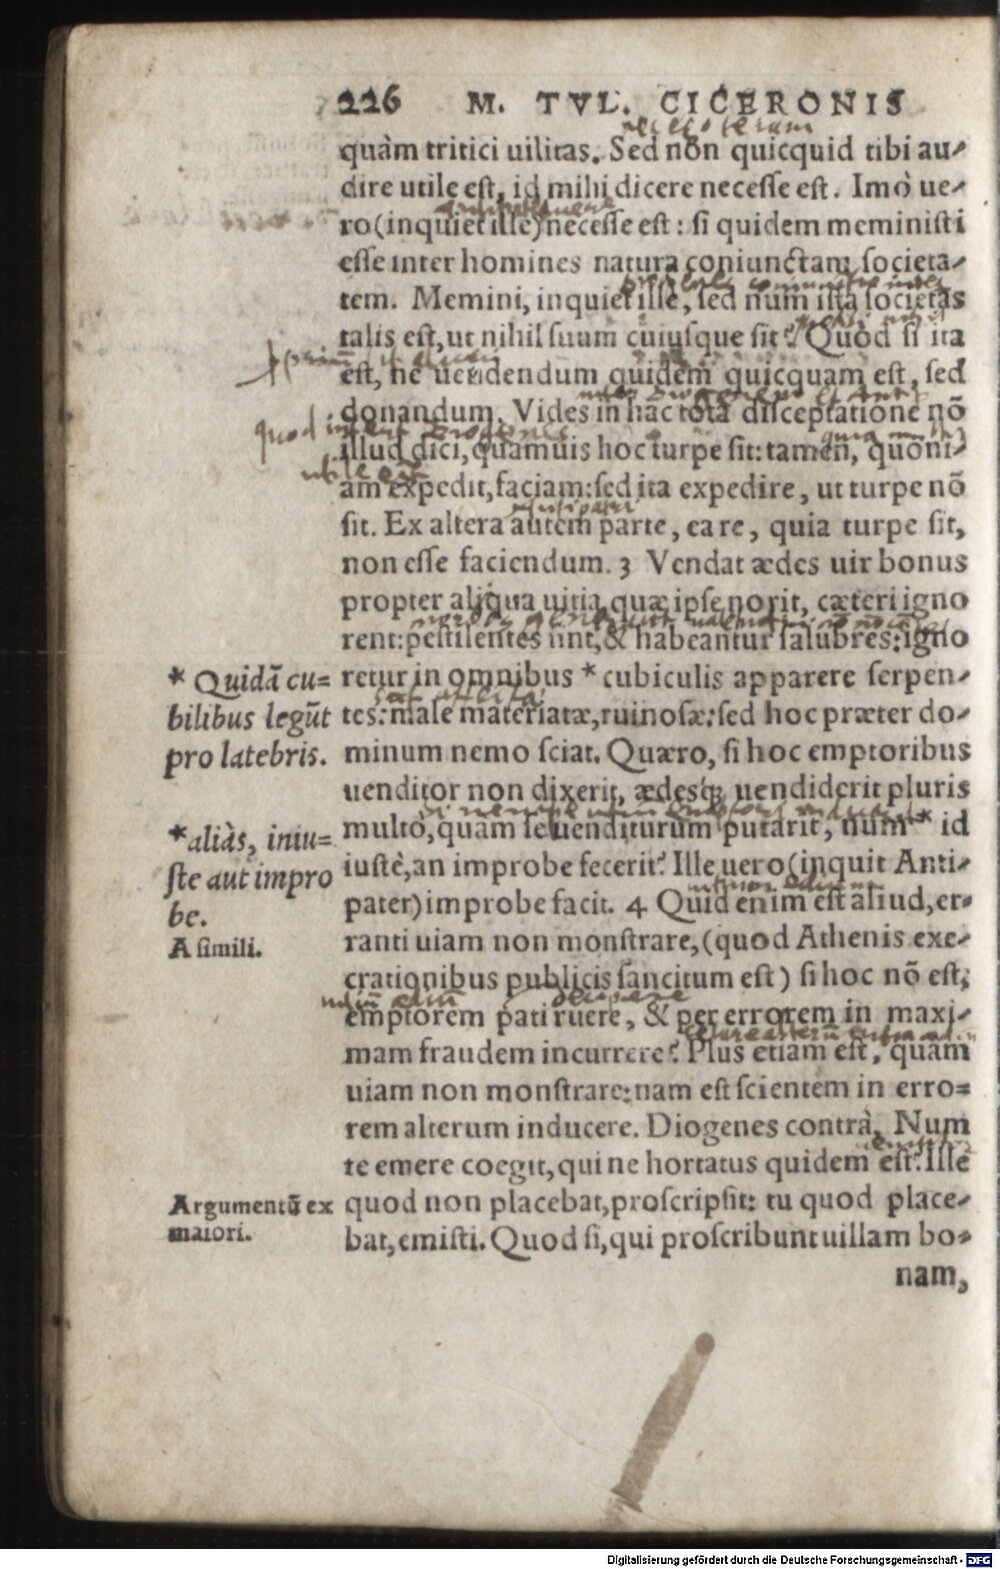 226 M. TVL. CICERONIS
quàm tritici uilitas. Sed non quicquid tibi au-
dire utile est, id mihi dicere necesse est. Imò ue-
ro (inquiet ille) necesse est: si quidem meministi
esse inter homines natura coniunctam societa-
tem. Memini, inquiet ille, sed num ista societas
talis est, ut nihil suum cuiusque sit? Quòd si ita
est, ne uendendum quidem quicquam est, sed
donandum. Vides in hac tota disceptatione nō
illud dici, quamuis hoc turpe sit: tamen, quoni-
am expedit, faciam: sed ita expedire, ut turpe nō
sit. Ex altera autem parte, ea re, quia turpe sit,
non esse faciendum. 3 Vendat ædes uir bonus
propter aliqua uitia, quæ ipse norit, cæteri igno
rent: pestilentes sint, & habeantur salubres: igno
retur in omnibus * cubiculis apparere serpen-
tes: male materiatæ, ruinosæ: sed hoc præter do-
minum nemo sciat. Quæro, si hoc emptoribus
uenditor non dixerit, ædesq́; uendiderit pluris
multò, quàm se uenditurum putarit, num * id
iustè, an improbe fecerit? Ille uero (inquit Anti-
pater) improbe facit. 4 Quid enim est aliud, er-
ranti uiam non monstrare, (quod Athenis exe-
crationibus publicis sancitum est) si hoc nō est,
emptorem pati ruere, & per errorem in maxi-
mam fraudem incurrere? Plus etiam est, quàm
uiam non monstrare: nam est scientem in erro-
rem alterum inducere. Diogenes contrà, Num
te emere coegit, qui ne hortatus quidem est? Ille
quod non placebat, proscripsit: tu quod place-
bat, emisti. Quod si, qui proscribunt uillam bo-
nam,
* Quidā cu-
bilibus legūt
pro latebris.
* aliàs, iniu-
ste aut impro
be.
A simili.
Argumentū ex
maiori.
Digitalisierung gefördert durch die Deutsche Forschungsgemeinschaft - DFG